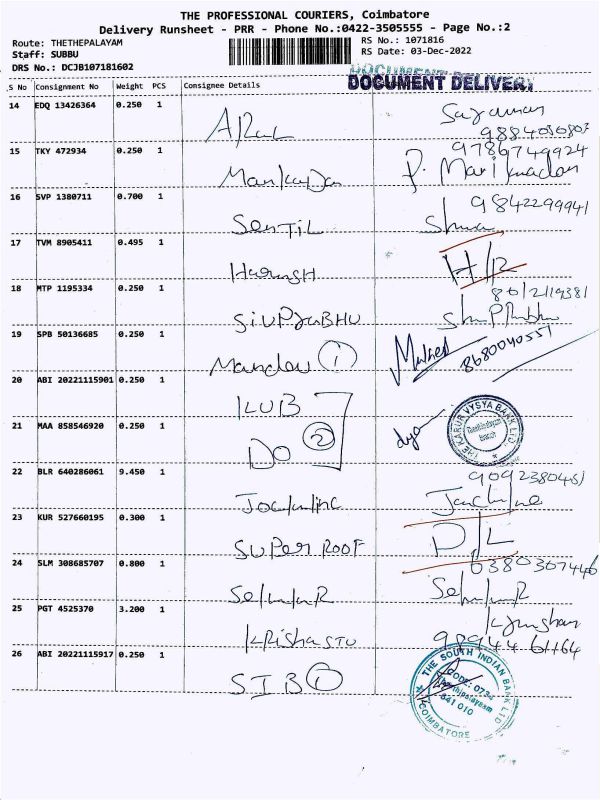 THE PROFESSIONAL COURIERS, Coimbatore
Delivery Runsheet - PRR - Phone No.:0422-3505555 - Page No.:2
Route: THETHEPALAYAM
Staff: SUBBU
DRS No.: DCJB107181602
RS No.: 1071816
RS Date: 03-Dec-2022
DOCUMENT DELIVERY
S No Consignment No Weight PCS Consignee Details
14 EDQ 13426364 0.250 1
9884030803
15 TKY 472934 0.250 1
9786749924
16 SVP 1380711 0.700 1
SenTIL
9842299941
17 TVM 8905411 0.495 1
HaruSH H/R
18 MTP 1195334 0.250 1
SIVPraBHU
8612119381
19 SPB 50136685 0.250 1
1
8680040557
20 ABI 20221115901 0.250 1
KVB
21 MAA 858546920 0.250 1
DO 2
THE KARUR VYSYA BANK LTD.
Branch
22 BLR 640286061 9.450 1
9092380451
23 KUR 527660195 0.300 1
SUPer ROOF D/L
24 SLM 308685707 0.800 1
6380307446
25 PGT 4525370 3.200 1
98944 61164
26 ABI 20221115917 0.250 1
SIB 1
THE SOUTH INDIAN BANK LTD
CODE: 0734
641 010
COIMBATORE